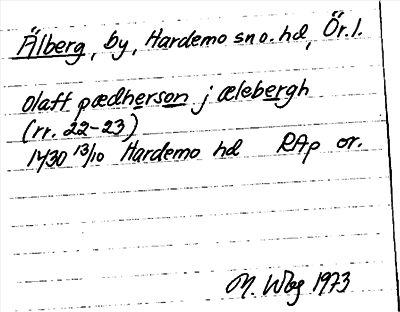 Älberg, by, Hardemo sn o. hd, Ör. l.
olaff pædherson j ælebergh
(rr. 22-23)
1430 13/10 Hardemo hd RAp or.
M. Wbg 1973